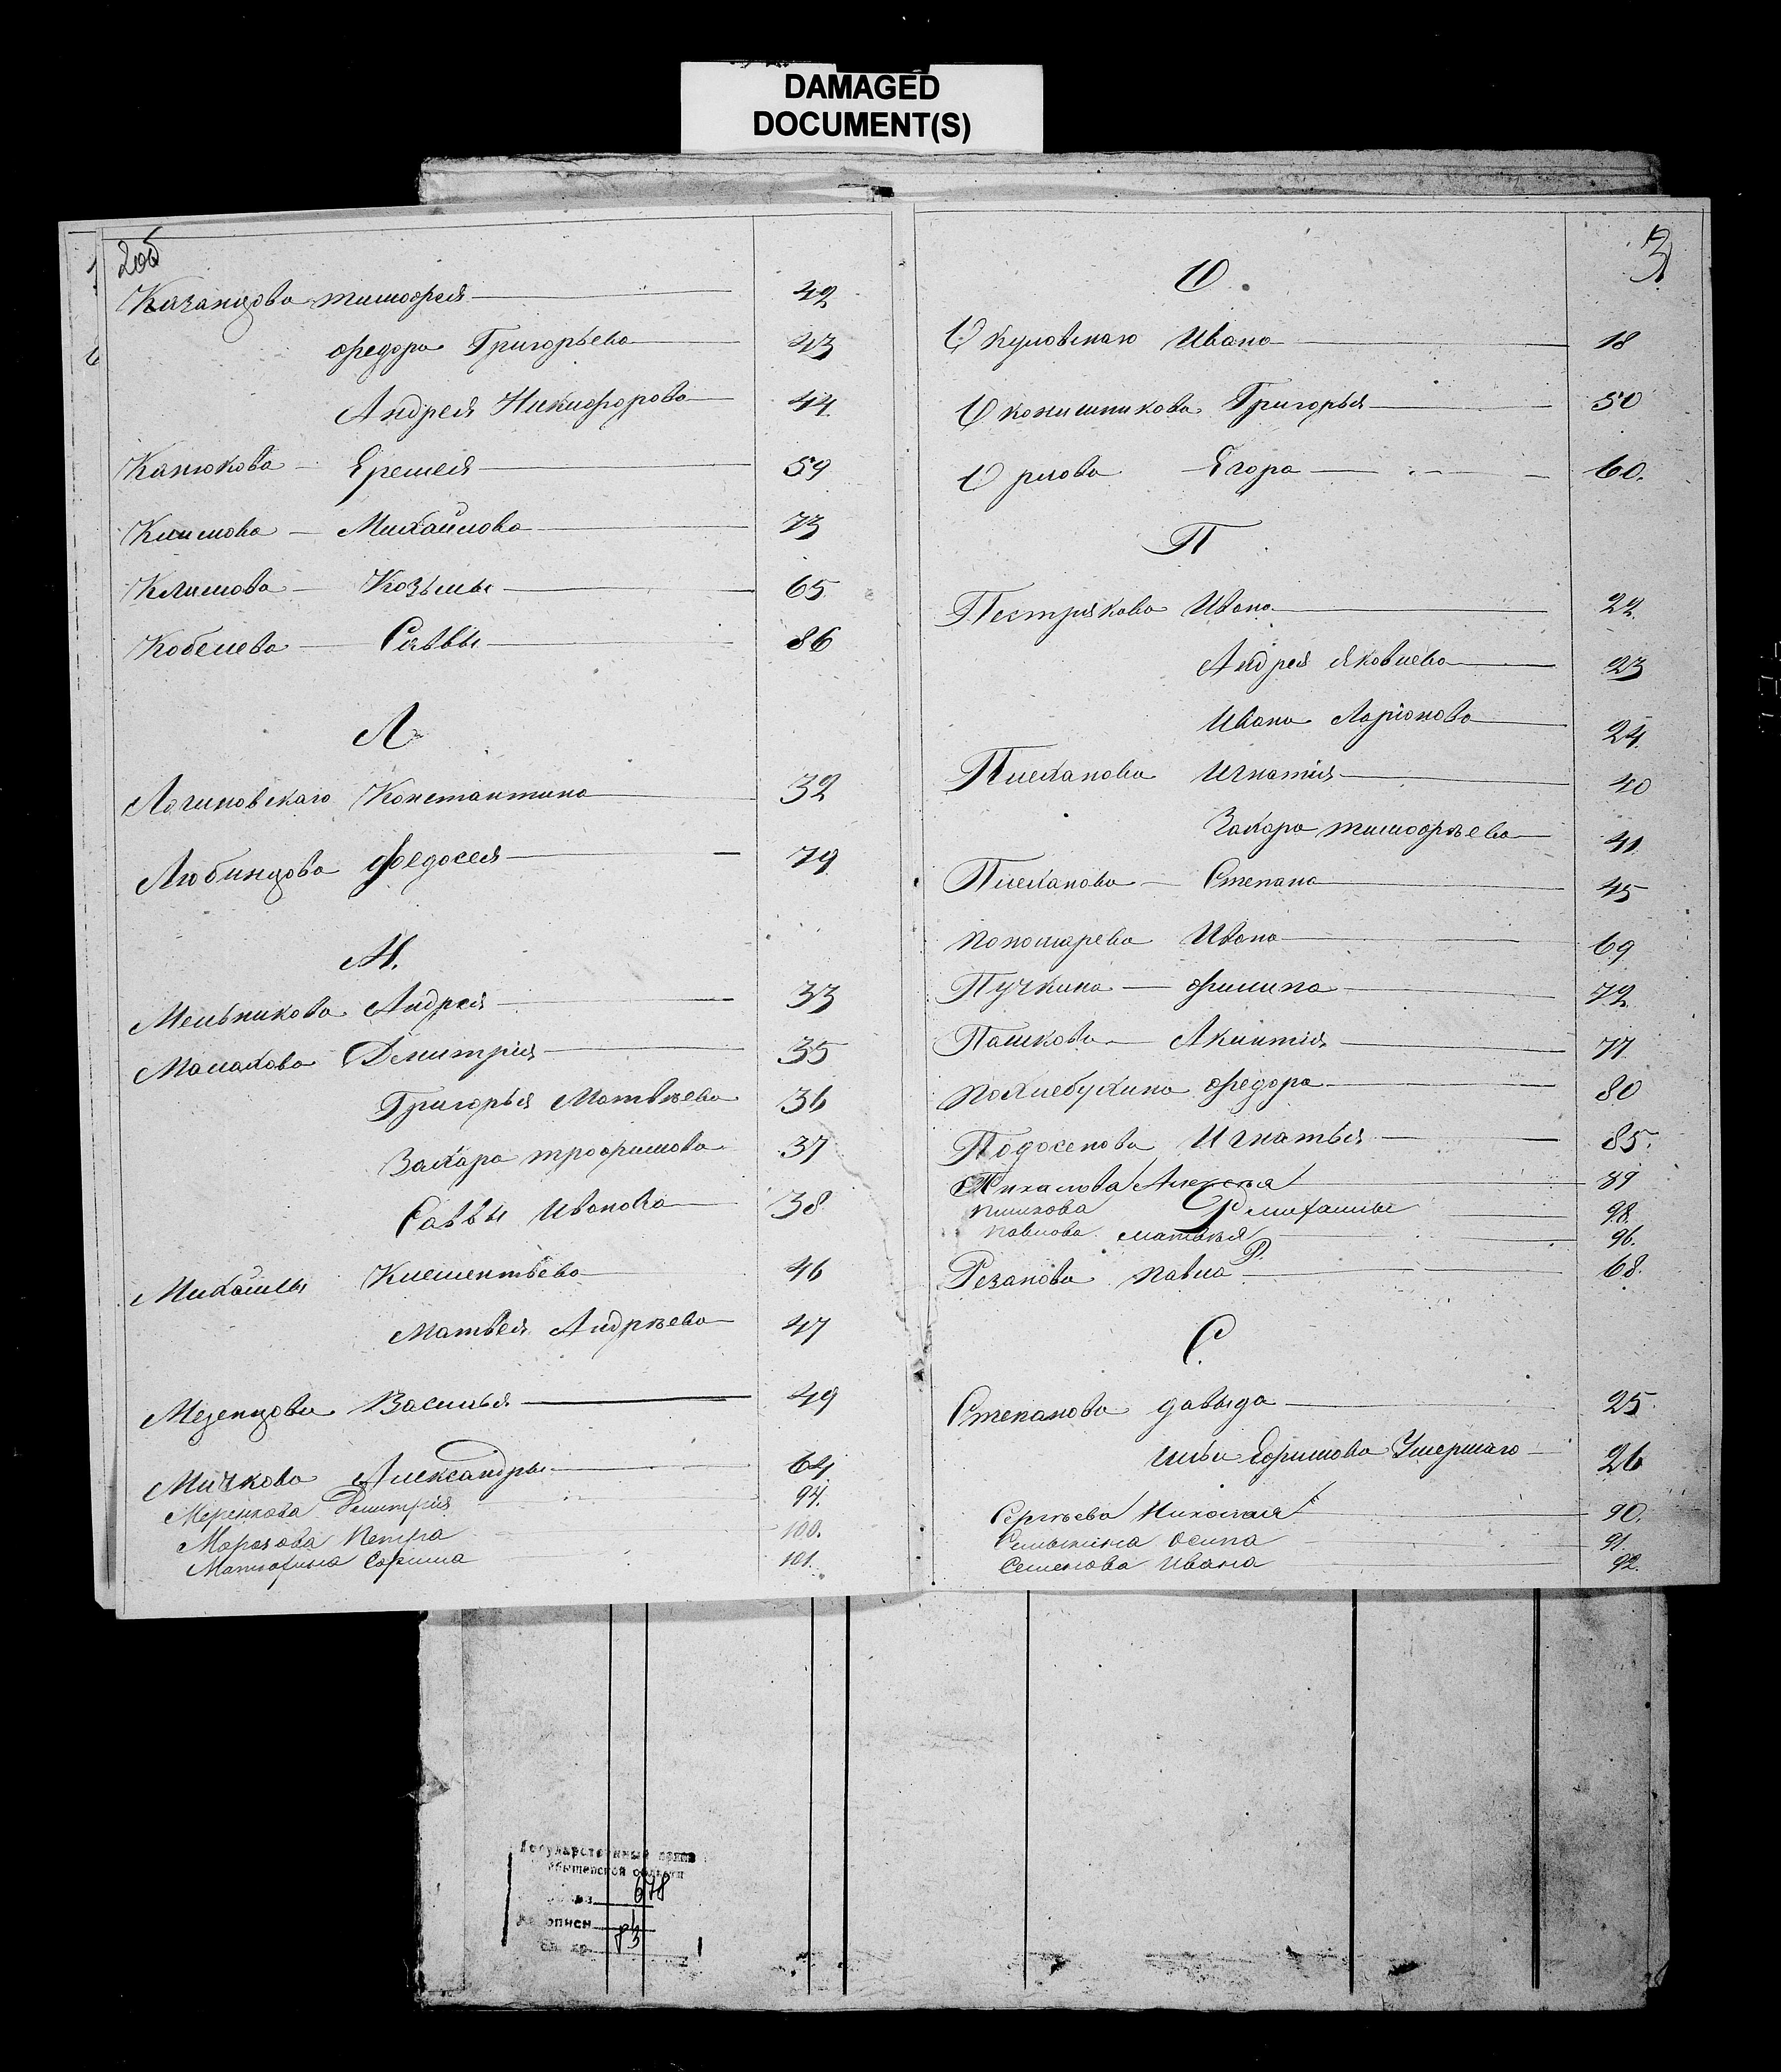 DAMAGED
DOCUMENT(S)
2об
Казанцова тимофея 42
федора Григорьева 43
Андрея Никифорова 44
Канюкова Еремея 59
Климова Михайлова 73
Климова Козьмы 65
Кобелева Саввы 86
Л
Логиновскаго Константина 32
Любинцова федосея 79
М.
Мельникова Андрея 33
Малахова Димитрія 35
Григорья Матвѣева 36
Захара трофимова 37
Саввы Иванова 38
Михайлы Клементьева 46
Матвея Андрѣева 47
Мезенцова Василья 49
Мичкова Александры 64
Меренкова Димитрія 94.
Морозова Петра 100.
Ефима 101.
3
О.
Окуловскаго Ивана 18
Оконишникова Григорья 50
Орлова Егора 60.
П
Пестрякова Ивана 22
Андрея Яковлева 23
Ивана Ларіонова 24
Плеханова Игнатія 40
Захара тимофѣева 41
Плеханова Степана 45
пономарева Ивана 69
Пучкина филипа 72
Пашкова Акинтія 77
похлебухина федора 80
Подосенова Игнатья 85.
Алексѣя 89
98.
павлова матвѣя 96.
Р.
Резанова павла 68.
С.
Степанова давыда 25
Ильи Ефимова Умершаго 26
Сергѣева Николая 90.
осипа 91.
Семенова Ивана 92.
Государственный архив
области
678
описи 1
83